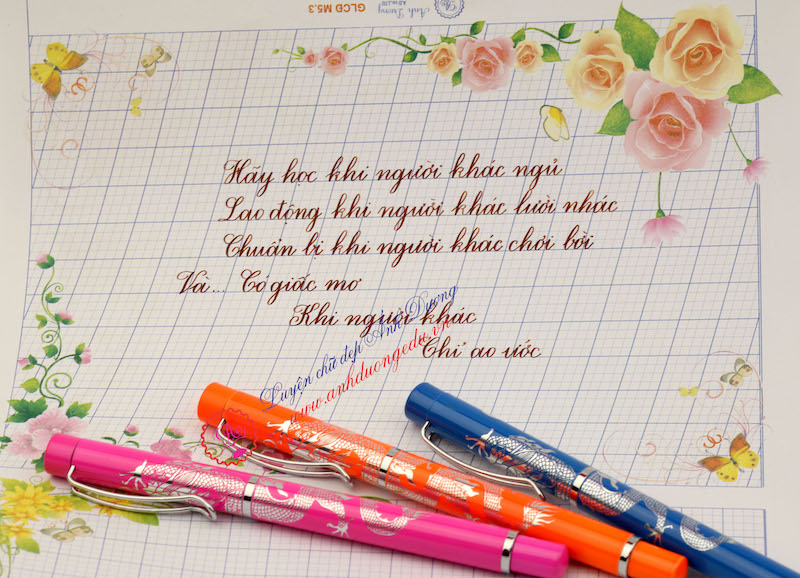 Ánh Dương
GLCĐ M5.3
Hãy học khi người khác ngủ
Lao động khi người khác lười nhác
Chuẩn bị khi người khác chơi bời
Và... Có giấc mơ
Khi người khác
Chỉ ao ước
Luyện chữ đẹp Ánh Dương
www.anhduongedu.vn